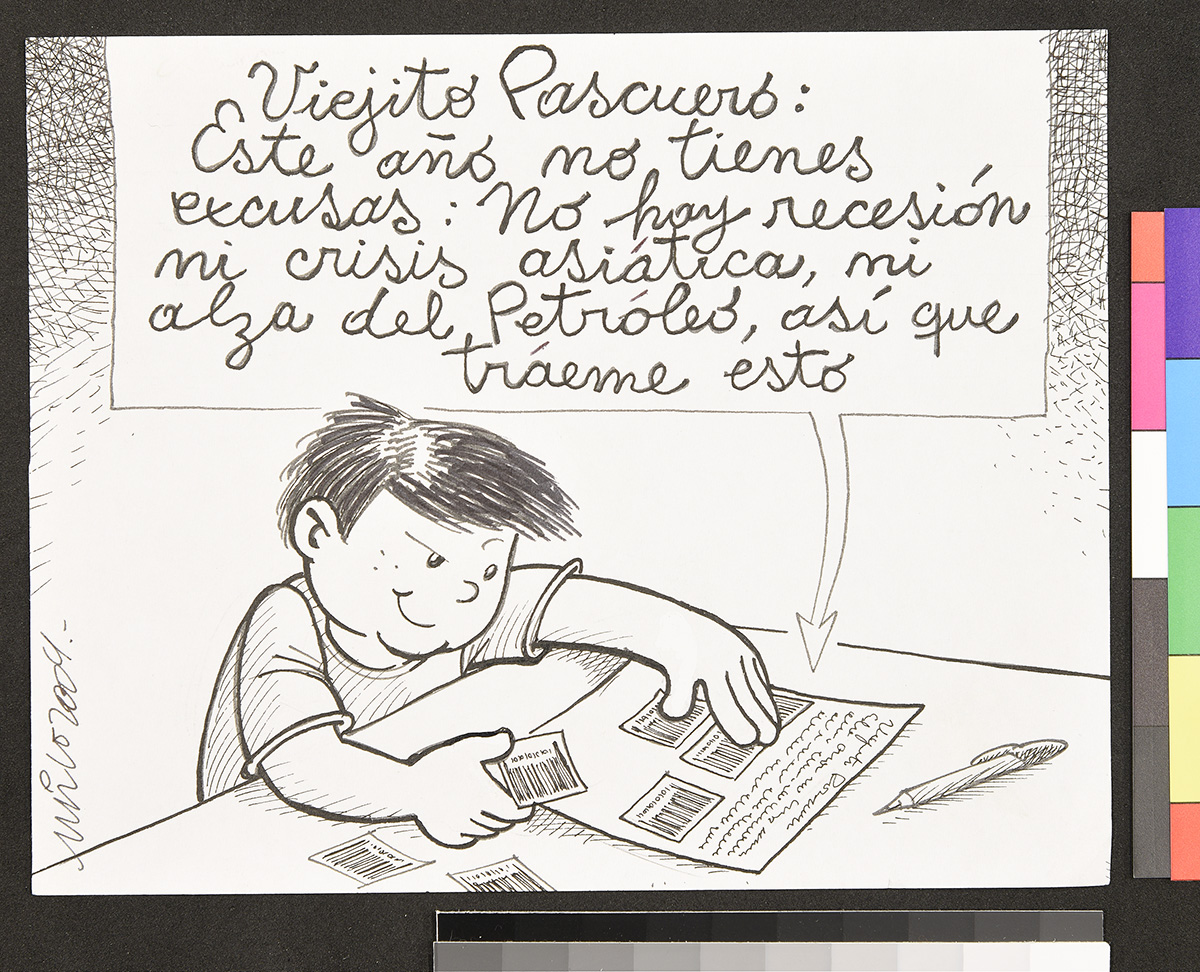 Viejito Pascuero:
Este año no tienes
excusas: No hay recesión
ni crisis asiática, ni
alza del Petróleo, así que
tráeme ésto